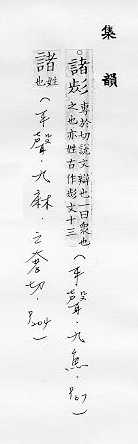 集韻
。諸 專於切說文辯也一曰衆也
之也亦姓古作 文十三
(平聲·九魚·P67)
諸 姓也 (平聲·九麻·之奢切·P204)